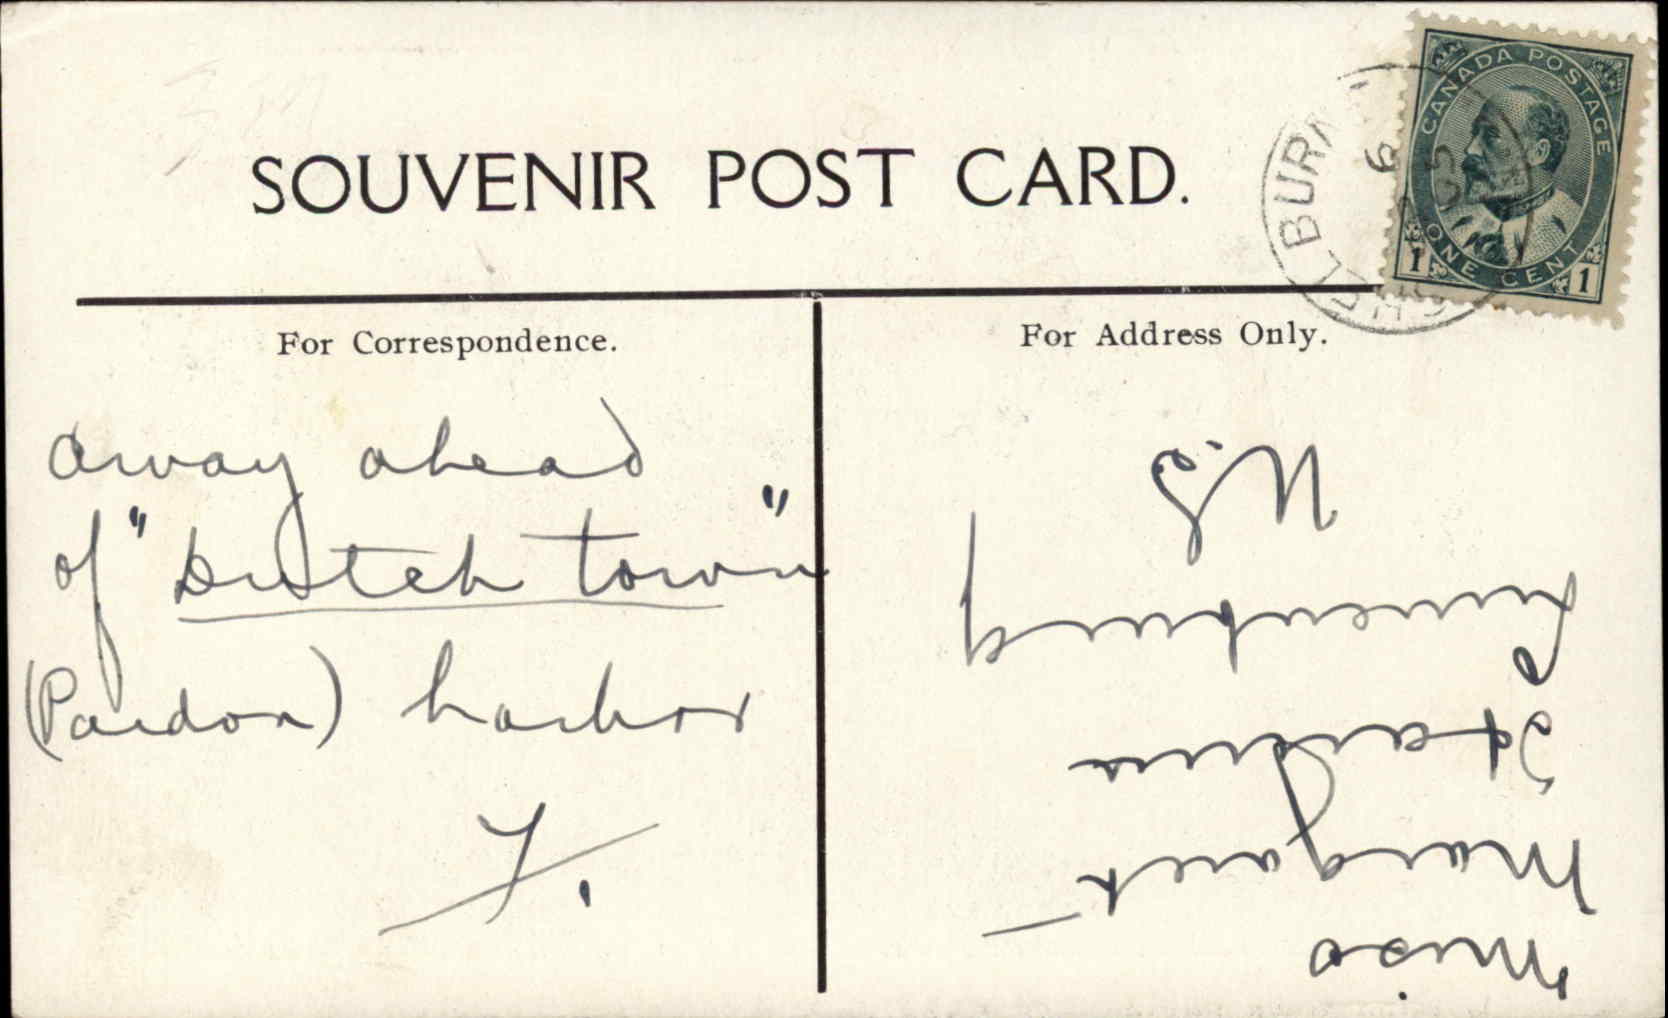 SOUVENIR POST CARD.
CANADA POSTAGE
ONE CENT
1 1
For Correspondence.
away ahead
of "Dutch town"
(Pardon) harbor
F.
For Address Only.
Miss
Margaret
Lunenburg
N.S